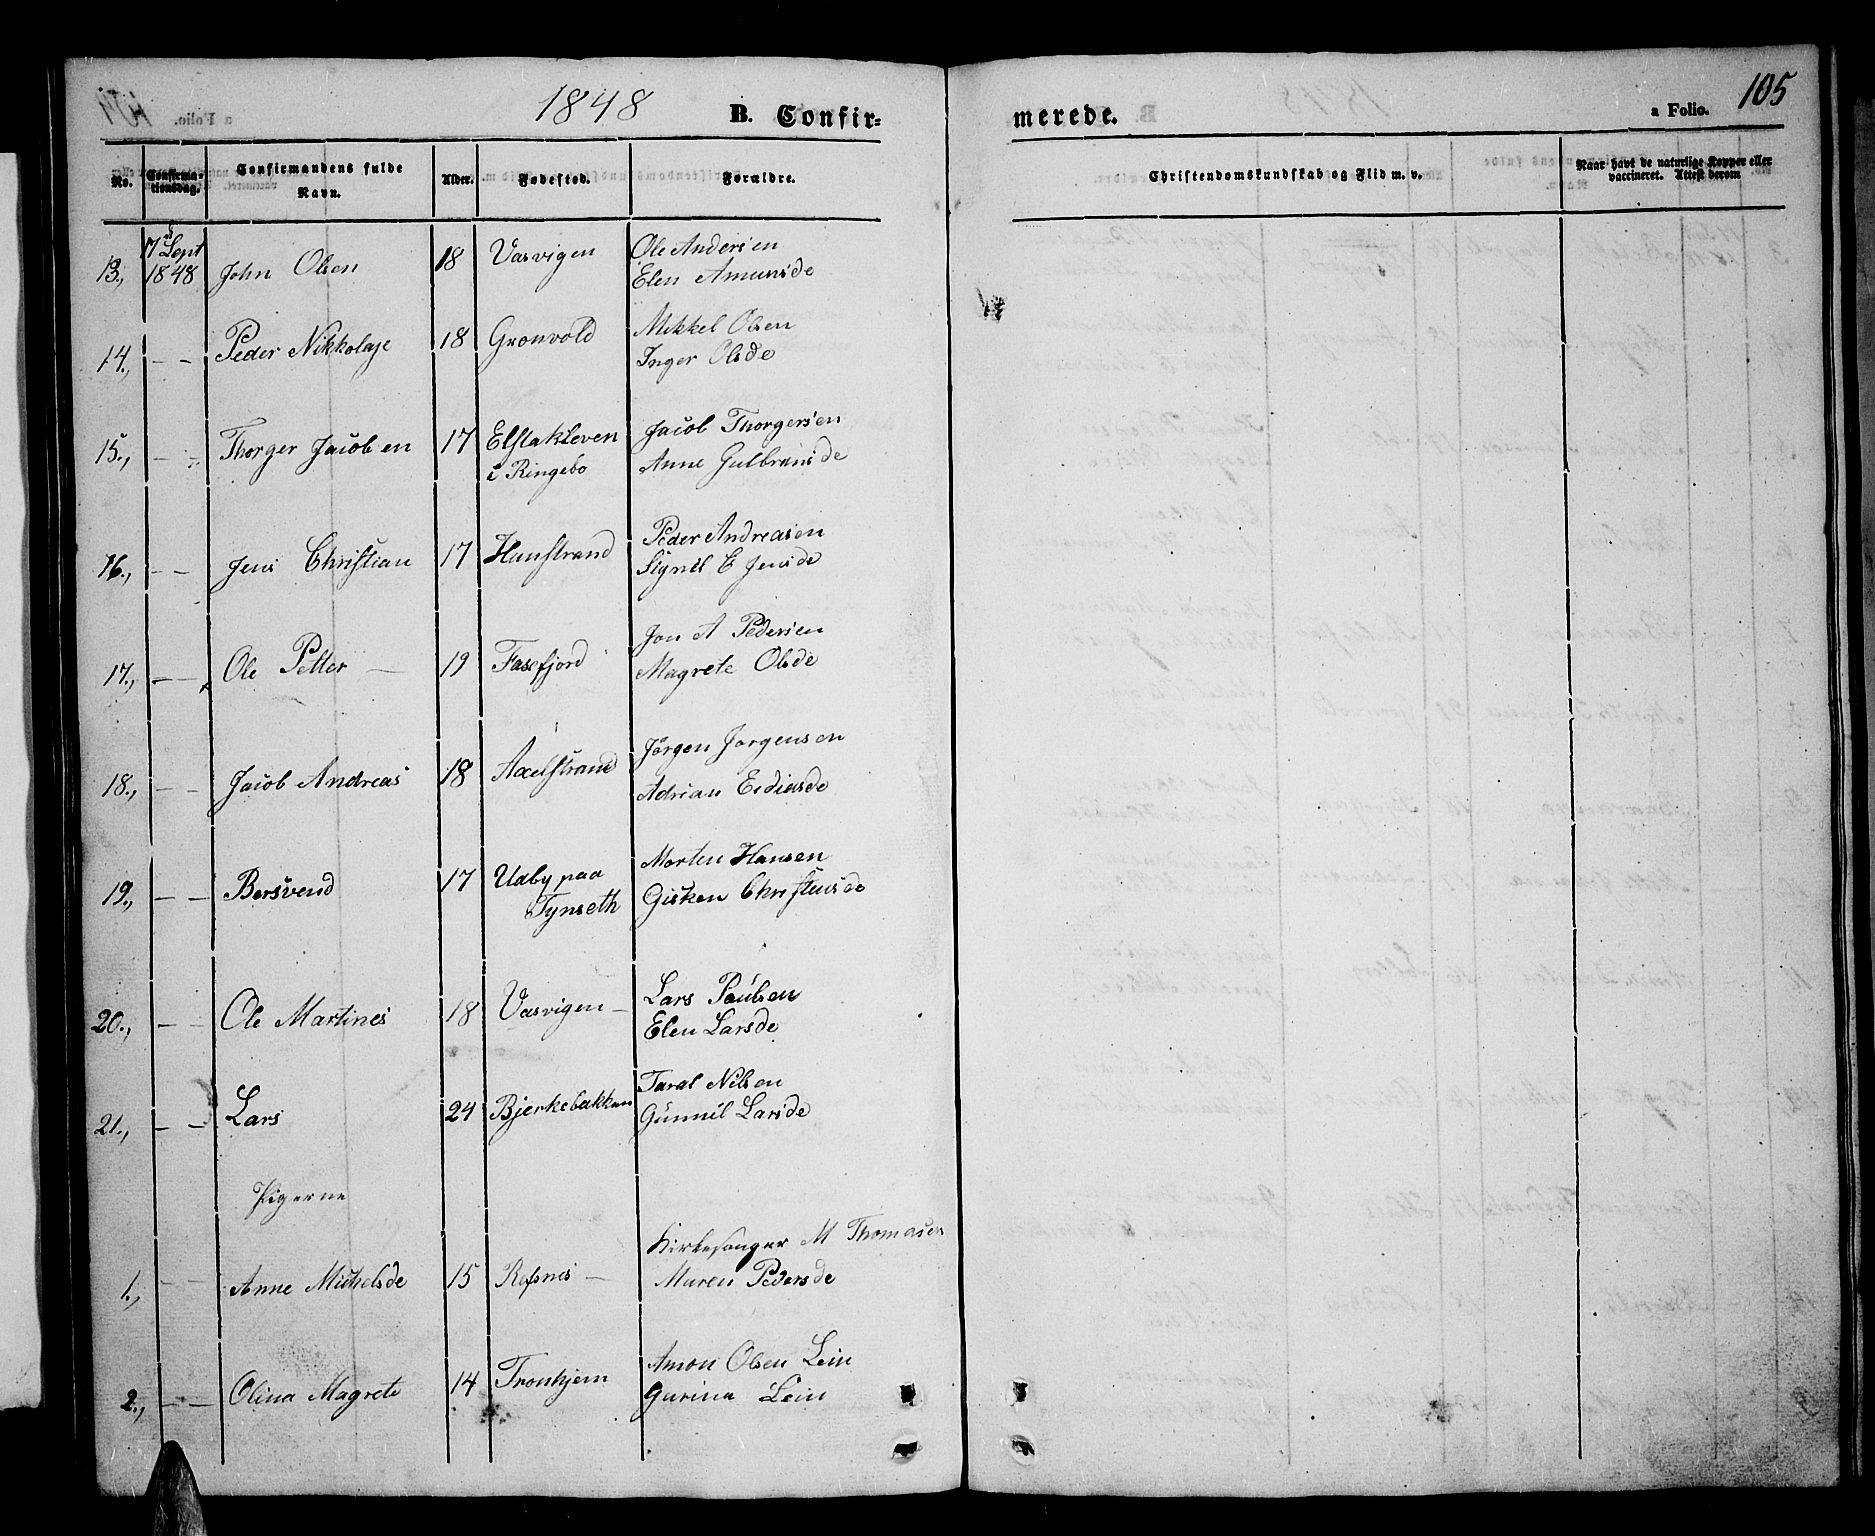 1848 B. Confir-
merede. a Folio. 105
No. Confirma-tionsdag. Confirmandens fulde Navn. Alder. Fødested. Forældre.
Christendomskundskab og Flid m. v. Naar havt de naturlige Kopper eller vaccineret. Attest derom
13., 17 Sept 1848 John Olsen 18 Vasvigen Ole Andersen
Elen Amunsde
14., – – Peder Nikkolaje 18 Gronvold Mikkel Olsen
Inger Olsde
15., – – Thorger Jacobsen 17 Elstakleven i Ringebo Jacob Thorgersen
Anne Gulbransde
16., – – Jens Christian 17 Hanstrand Peder Andreasen
Signil E Jensde
17., – – Ole Petter – 19 Fasefjord Jon A Pedersen
Magrete Olsde
18., – – Jacob Andreas 18 Axelstrand Jörgen Jorgensen
Adrian
19., – – Bersvend 17 Udby paa Tynseth Morten Hansen
Gisken Christensde
20., – – Ole Martines 18 Vasvigen – Lars Paulsen
Elen Larsde
21., – – Lars 24 Bjerkebakken Taral Nilsen
Gunnil Larsde
Pigerne
1., – – Anne Mickelsde 15 Refsnes – Kirkesanger M Thomasen
Maren Pedersde
2., – – Olina Magrete 14 Tronhjem Amon Olsen Lein
Gurina Lein